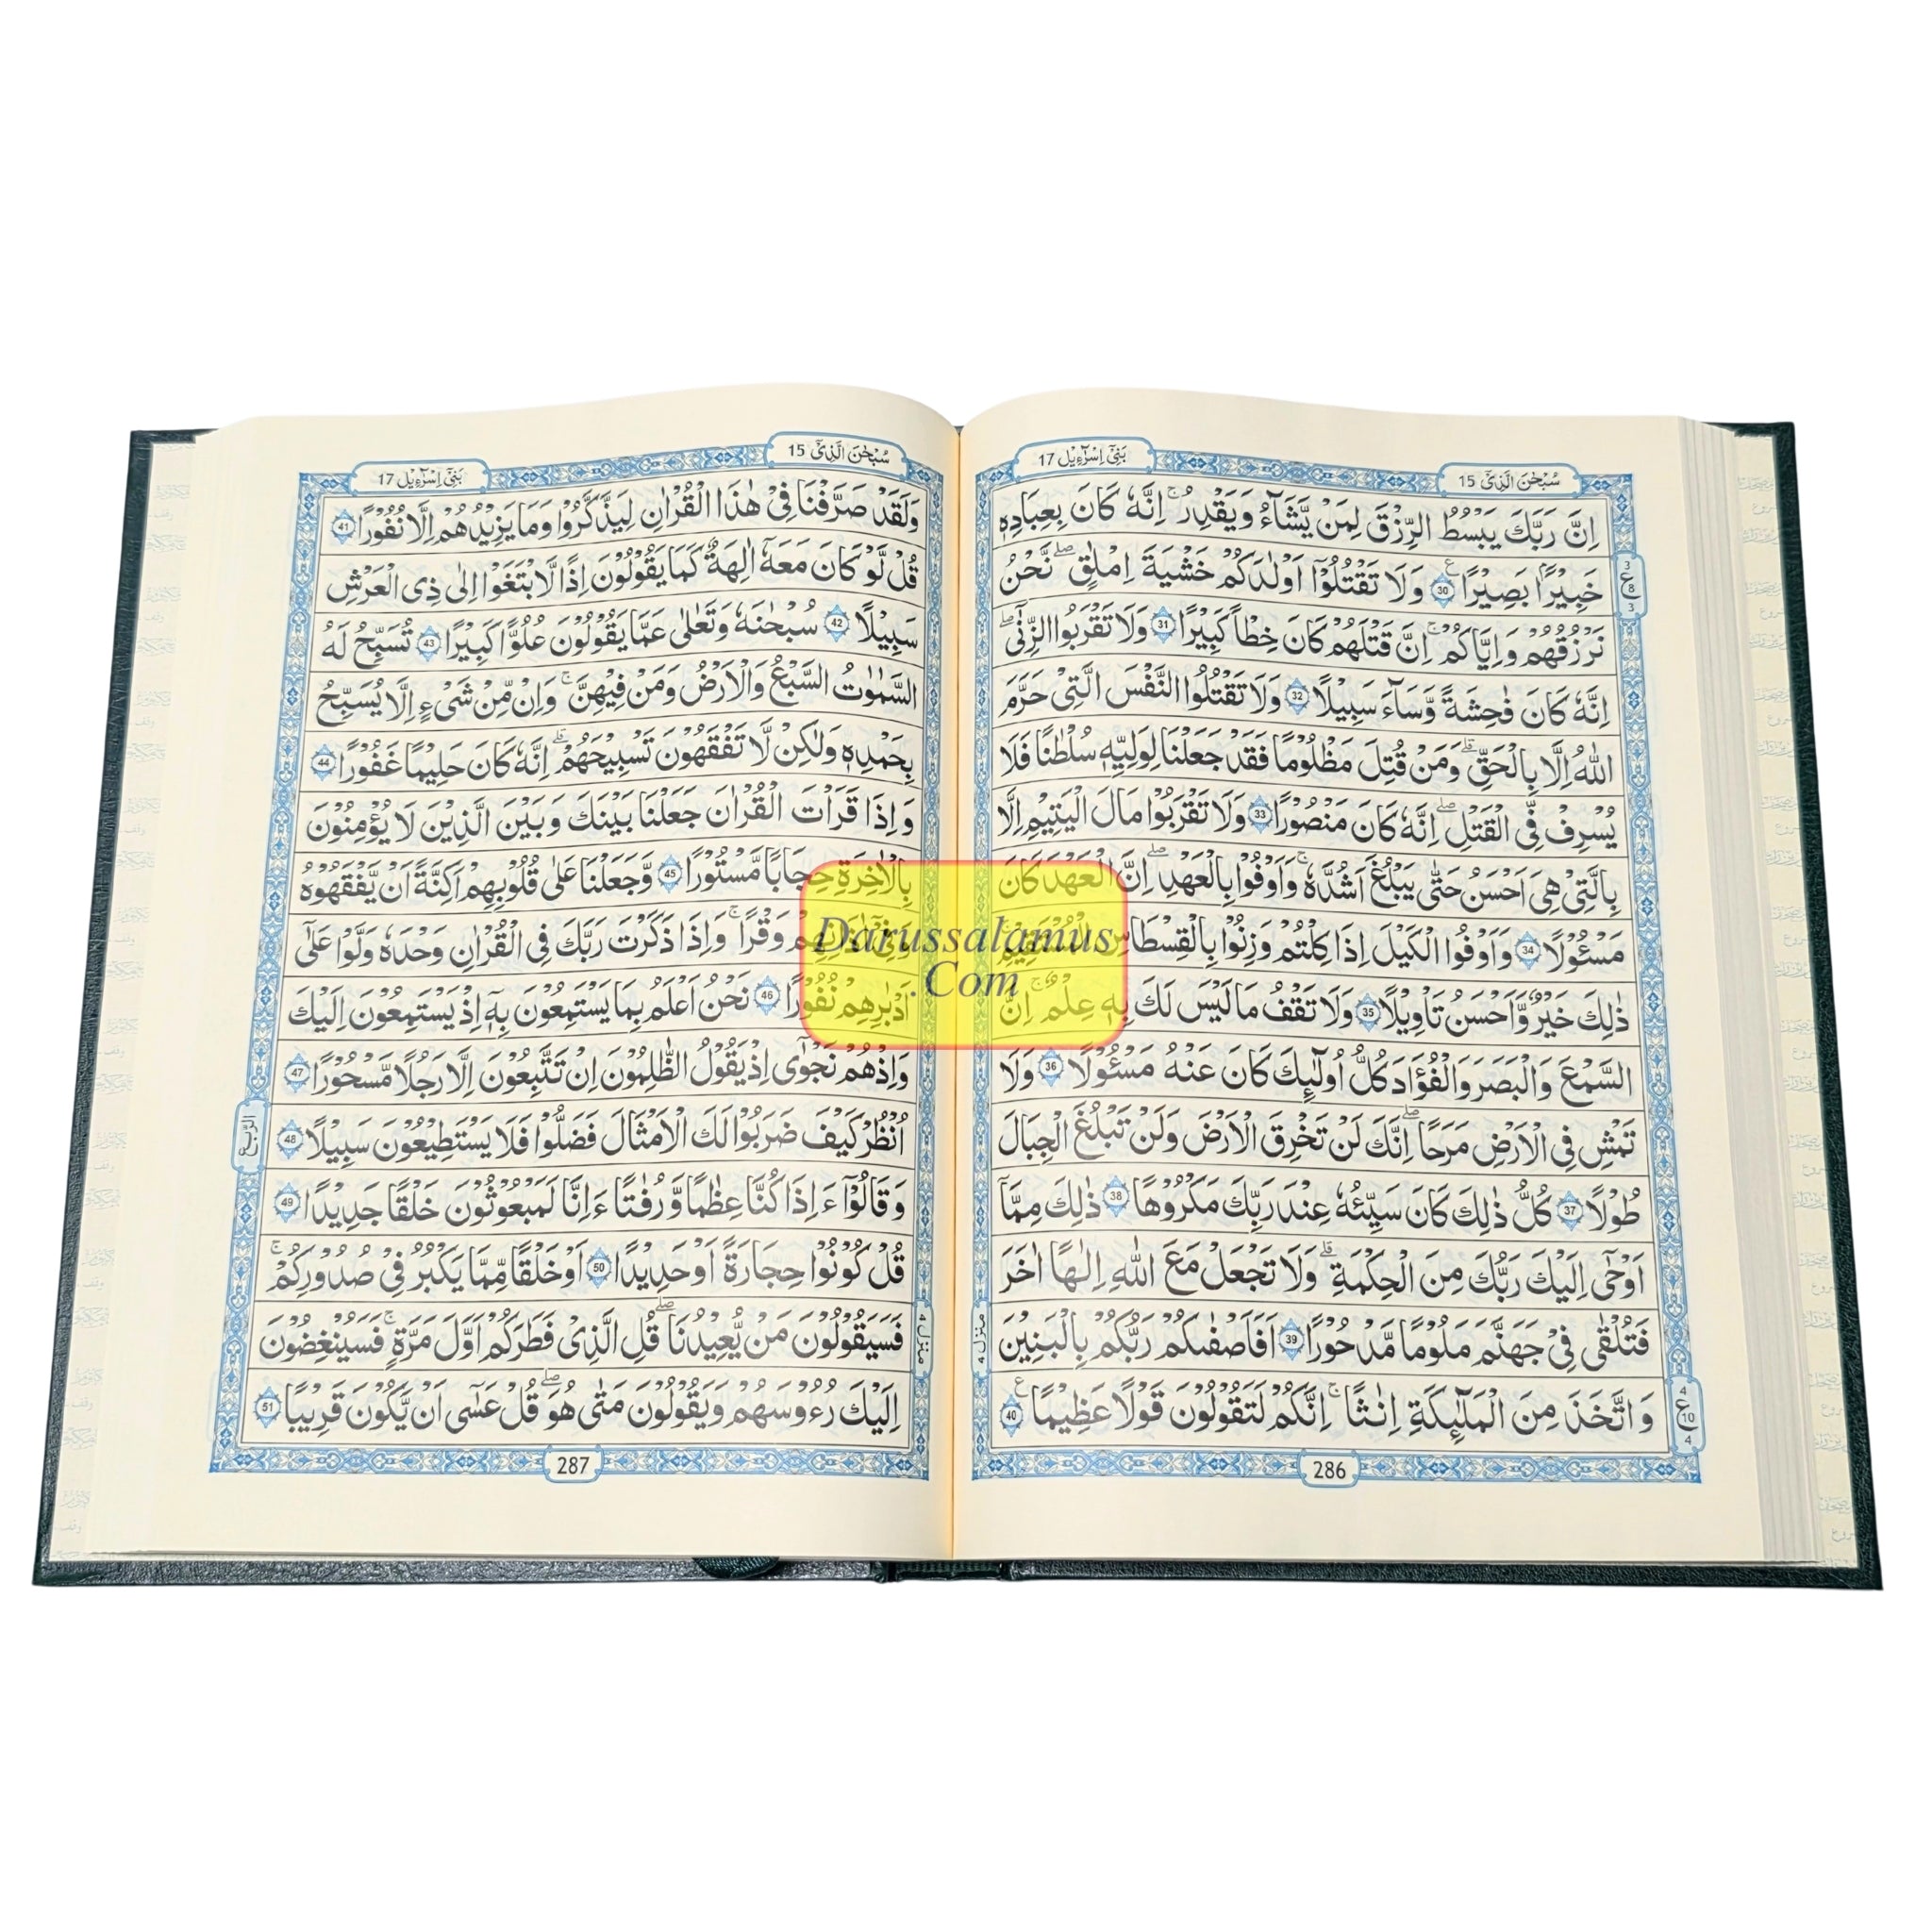 سُبْحٰنَ الَّذِيْٓ 15
بَنِيْٓ اِسْرَآءِيْل 17
اِنَّ رَبَّكَ يَبْسُطُ الرِّزْقَ لِمَنْ يَّشَآءُ وَيَقْدِرُ ۚ اِنَّهٗ كَانَ بِعِبَادِهٖ
خَبِيْرًۢا بَصِيْرًا 30 وَلَا تَقْتُلُوْٓا اَوْلَادَكُمْ خَشْيَةَ اِمْلَاقٍ ۖ نَحْنُ
نَرْزُقُهُمْ وَاِيَّاكُمْ ۚ اِنَّ قَتْلَهُمْ كَانَ خِطْاً كَبِيْرًا 31 وَلَا تَقْرَبُوا الزِّنٰٓى ۖ
اِنَّهٗ كَانَ فَاحِشَةً ۭ وَّسَآءَ سَبِيْلًا 32 وَلَا تَقْتُلُوا النَّفْسَ الَّتِيْ حَرَّمَ
اللّٰهُ اِلَّا بِالْحَقِّ ۗ وَمَنْ قُتِلَ مَظْلُوْمًا فَقَدْ جَعَلْنَا لِوَلِيِّهٖ سُلْطٰنًا فَلَا
يُسْرِفْ فِّي الْقَتْلِ ۖ اِنَّهٗ كَانَ مَنْصُوْرًا 33 وَلَا تَقْرَبُوْا مَالَ الْيَتِيْمِ اِلَّا
بِالَّتِيْ هِيَ اَحْسَنُ حَتّٰى يَبْلُغَ اَشُدَّهٗ ۚ وَاَوْفُوْا بِالْعَهْدِ ۖ اِنَّ الْعَهْدَ كَانَ
مَسْـُٔوْلًا 34 وَاَوْفُوا الْكَيْلَ اِذَا كِلْتُمْ وَزِنُوْا بِالْقِسْطَاسِ الْمُسْتَقِيْمِ
ذٰلِكَ خَيْرٌ وَّاَحْسَنُ تَاْوِيْلًا 35 وَلَا تَقْفُ مَا لَيْسَ لَكَ بِهٖ عِلْمٌ ۚ اِنَّ
السَّمْعَ وَالْبَصَرَ وَالْفُؤَادَ كُلُّ اُولٰٓئِكَ كَانَ عَنْهُ مَسْـُٔوْلًا 36 وَلَا
تَمْشِ فِي الْاَرْضِ مَرَحًا ۖ اِنَّكَ لَنْ تَخْرِقَ الْاَرْضَ وَلَنْ تَبْلُغَ الْجِبَالَ
طُوْلًا 37 كُلُّ ذٰلِكَ كَانَ سَيِّئُهٗ عِنْدَ رَبِّكَ مَكْرُوْهًا 38 ذٰلِكَ مِمَّآ
اَوْحٰٓى اِلَيْكَ رَبُّكَ مِنَ الْحِكْمَةِ ۗ وَلَا تَجْعَلْ مَعَ اللّٰهِ اِلٰهًا اٰخَرَ
فَتُلْقٰى فِيْ جَهَنَّمَ مَلُوْمًا مَّدْحُوْرًا 39 اَفَاَصْفٰىكُمْ رَبُّكُمْ بِالْبَنِيْنَ
وَاتَّخَذَ مِنَ الْمَلٰٓئِكَةِ اِنَاثًا ۚ اِنَّكُمْ لَتَقُوْلُوْنَ قَوْلًا عَظِيْمًا 40
3 ع 8 3
4 ع 10 4
منزل ٤
286
سُبْحٰنَ الَّذِيْٓ 15
بَنِيْٓ اِسْرَآءِيْل 17
وَلَقَدْ صَرَّفْنَا فِيْ هٰذَا الْقُرْاٰنِ لِيَذَّكَّرُوْا وَمَا يَزِيْدُهُمْ اِلَّا نُفُوْرًا 41
قُلْ لَّوْ كَانَ مَعَهٗٓ اٰلِهَةٌ كَمَا يَقُوْلُوْنَ اِذًا لَّابْتَغَوْا اِلٰى ذِي الْعَرْشِ
سَبِيْلًا 42 سُبْحٰنَهٗ وَتَعٰلٰى عَمَّا يَقُوْلُوْنَ عُلُوًّا كَبِيْرًا 43 تُسَبِّحُ لَهُ
السَّمٰوٰتُ السَّبْعُ وَالْاَرْضُ وَمَنْ فِيْهِنَّ ۚ وَاِنْ مِّنْ شَيْءٍ اِلَّا يُسَبِّحُ
بِحَمْدِهٖ وَلٰكِنْ لَّا تَفْقَهُوْنَ تَسْبِيْحَهُمْ ۗ اِنَّهٗ كَانَ حَلِيْمًا غَفُوْرًا 44
وَاِذَا قَرَاْتَ الْقُرْاٰنَ جَعَلْنَا بَيْنَكَ وَبَيْنَ الَّذِيْنَ لَا يُؤْمِنُوْنَ
بِالْاٰخِرَةِ حِجَابًا مَّسْتُوْرًا 45 وَّجَعَلْنَا عَلٰى قُلُوْبِهِمْ اَكِنَّةً اَنْ يَّفْقَهُوْهُ
وَفِيْٓ اٰذَانِهِمْ وَقْرًا ۚ وَاِذَا ذَكَرْتَ رَبَّكَ فِي الْقُرْاٰنِ وَحْدَهٗ وَلَّوْا عَلٰٓى
اَدْبَارِهِمْ نُفُوْرًا 46 نَحْنُ اَعْلَمُ بِمَا يَسْتَمِعُوْنَ بِهٖٓ اِذْ يَسْتَمِعُوْنَ اِلَيْكَ
وَاِذْ هُمْ نَجْوٰٓى اِذْ يَقُوْلُ الظّٰلِمُوْنَ اِنْ تَتَّبِعُوْنَ اِلَّا رَجُلًا مَّسْحُوْرًا 47
اُنْظُرْ كَيْفَ ضَرَبُوْا لَكَ الْاَمْثَالَ فَضَلُّوْا فَلَا يَسْتَطِيْعُوْنَ سَبِيْلًا 48
وَقَالُوْٓا ءَاِذَا كُنَّا عِظَامًا وَّرُفَاتًا ءَاِنَّا لَمَبْعُوْثُوْنَ خَلْقًا جَدِيْدًا 49
قُلْ كُوْنُوْا حِجَارَةً اَوْ حَدِيْدًا 50 اَوْ خَلْقًا مِّمَّا يَكْبُرُ فِيْ صُدُوْرِكُمْ ۚ
فَسَيَقُوْلُوْنَ مَنْ يُّعِيْدُنَا ۖ قُلِ الَّذِيْ فَطَرَكُمْ اَوَّلَ مَرَّةٍ ۚ فَسَيُنْغِضُوْنَ
اِلَيْكَ رُءُوْسَهُمْ وَيَقُوْلُوْنَ مَتٰى هُوَ ۖ قُلْ عَسٰٓى اَنْ يَّكُوْنَ قَرِيْبًا 51
الربع
منزل ٤
287
Darussalamus
.Com